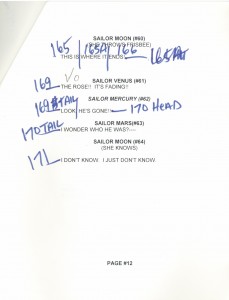 SAILOR MOON (#60)
(SHE THROWS FRISBEE)
165 / 165A / 166 — 165 Alt
THIS IS WHERE IT ENDS
VO
SAILOR VENUS (#61)
169 THE ROSE!! IT'S FADING!!
SAILOR MERCURY (#62)
169 TAIL LOOK, HE'S GONE! — 170 HEAD
SAILOR MARS(#63)
170 TAIL I WONDER WHO HE WAS?
SAILOR MOON (#64)
(SHE KNOWS)
171 I DON'T KNOW. I JUST DON'T KNOW
PAGE #12